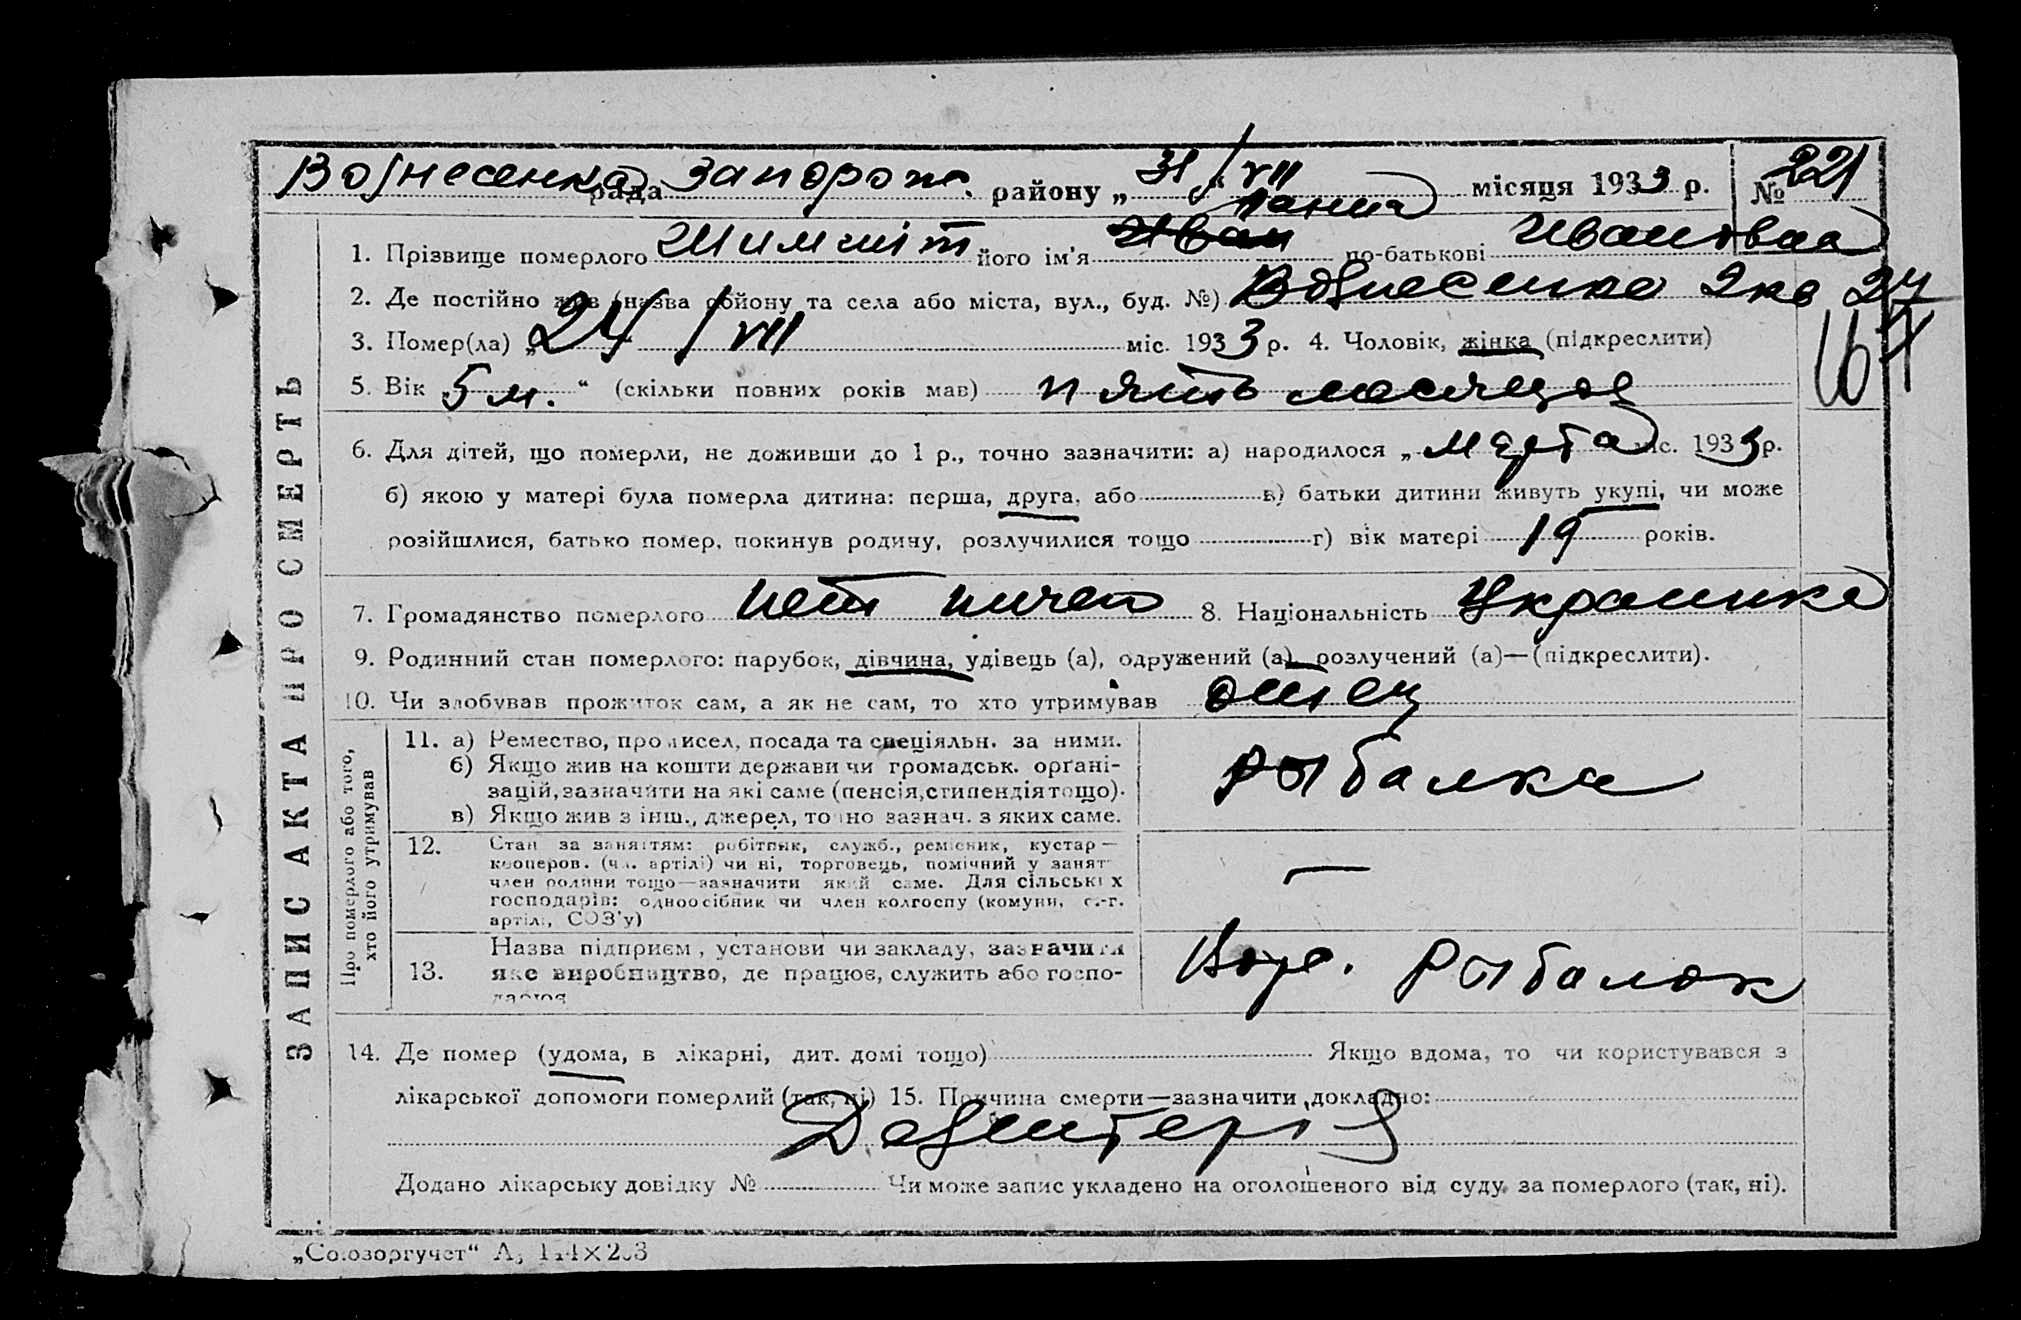 Вознесенка рада Запорож. району „ 31/VII місяця 1933 р. № 221
1. Прізвище померлого його ім'я по-батькові Ивановна
2. Де постійно жив (назва району та села або міста, вул., буд. №) Вознесенка
3. Помер(ла) „ 24 / VII міс. 1933 р. 4. Чоловік, жінка (підкреслити)
5. Вік 5 м. “ (скільки повних років мав) пять месяцов
6. Для дітей, що померли, не доживши до 1 р., точно зазначити: а) народилося „ марта міс. 1933 р.
б) якою у матері була померла дитина: перша, друга, або в) батьки дитини живуть укупі, чи може
розійшлися, батько помер, покинув родину, розлучилися тощо г) вік матері 19 років.
7. Громадянство померлого нет 8. Національність Украинка
9. Родинний стан померлого: парубок, дівчина, удівець (а), одружений (а), розлучений (а)—(підкреслити).
10. Чи здобував прожиток сам, а як не сам, то хто утримував отец
ЗАПИС АКТА ПРО СМЕРТЬ
Про померлого або того,
хто його утримував
11. а) Ремество, промисел, посада та спеціяльн. за ними.
б) Якщо жив на кошти держави чи громадськ. органі-
зацій, зазначити на які саме (пенсія, стипендія тощо).
в) Якщо жив з інш., джерел, точно зазнач. з яких саме.
Рыбалка
12. Стан за заняттям: робітник, служб., ремісник, кустар —
кооперов. (чл. артілі) чи ні, торговець, помічний у занят
член родини тощо—зазначити який саме. Для сільських
господарів: одноосібник чи член колгоспу (комуни, с.-г.
артілі, СОЗ'у)
—
13. Назва підприєм, установи чи закладу, зазначити
яке виробництво, де працює, служить або госпо-
дарює
Рыбалок
14. Де помер (удома, в лікарні, дит. домі тощо) Якщо вдома, то чи користувався з
лікарської допомоги померлий (так, ні) 15. Причина смерти—зазначити докладно:
Дезентерія
Додано лікарську довідку № Чи може запис укладено на оголошеного від суду за померлого (так, ні).
„Союзоргучет“